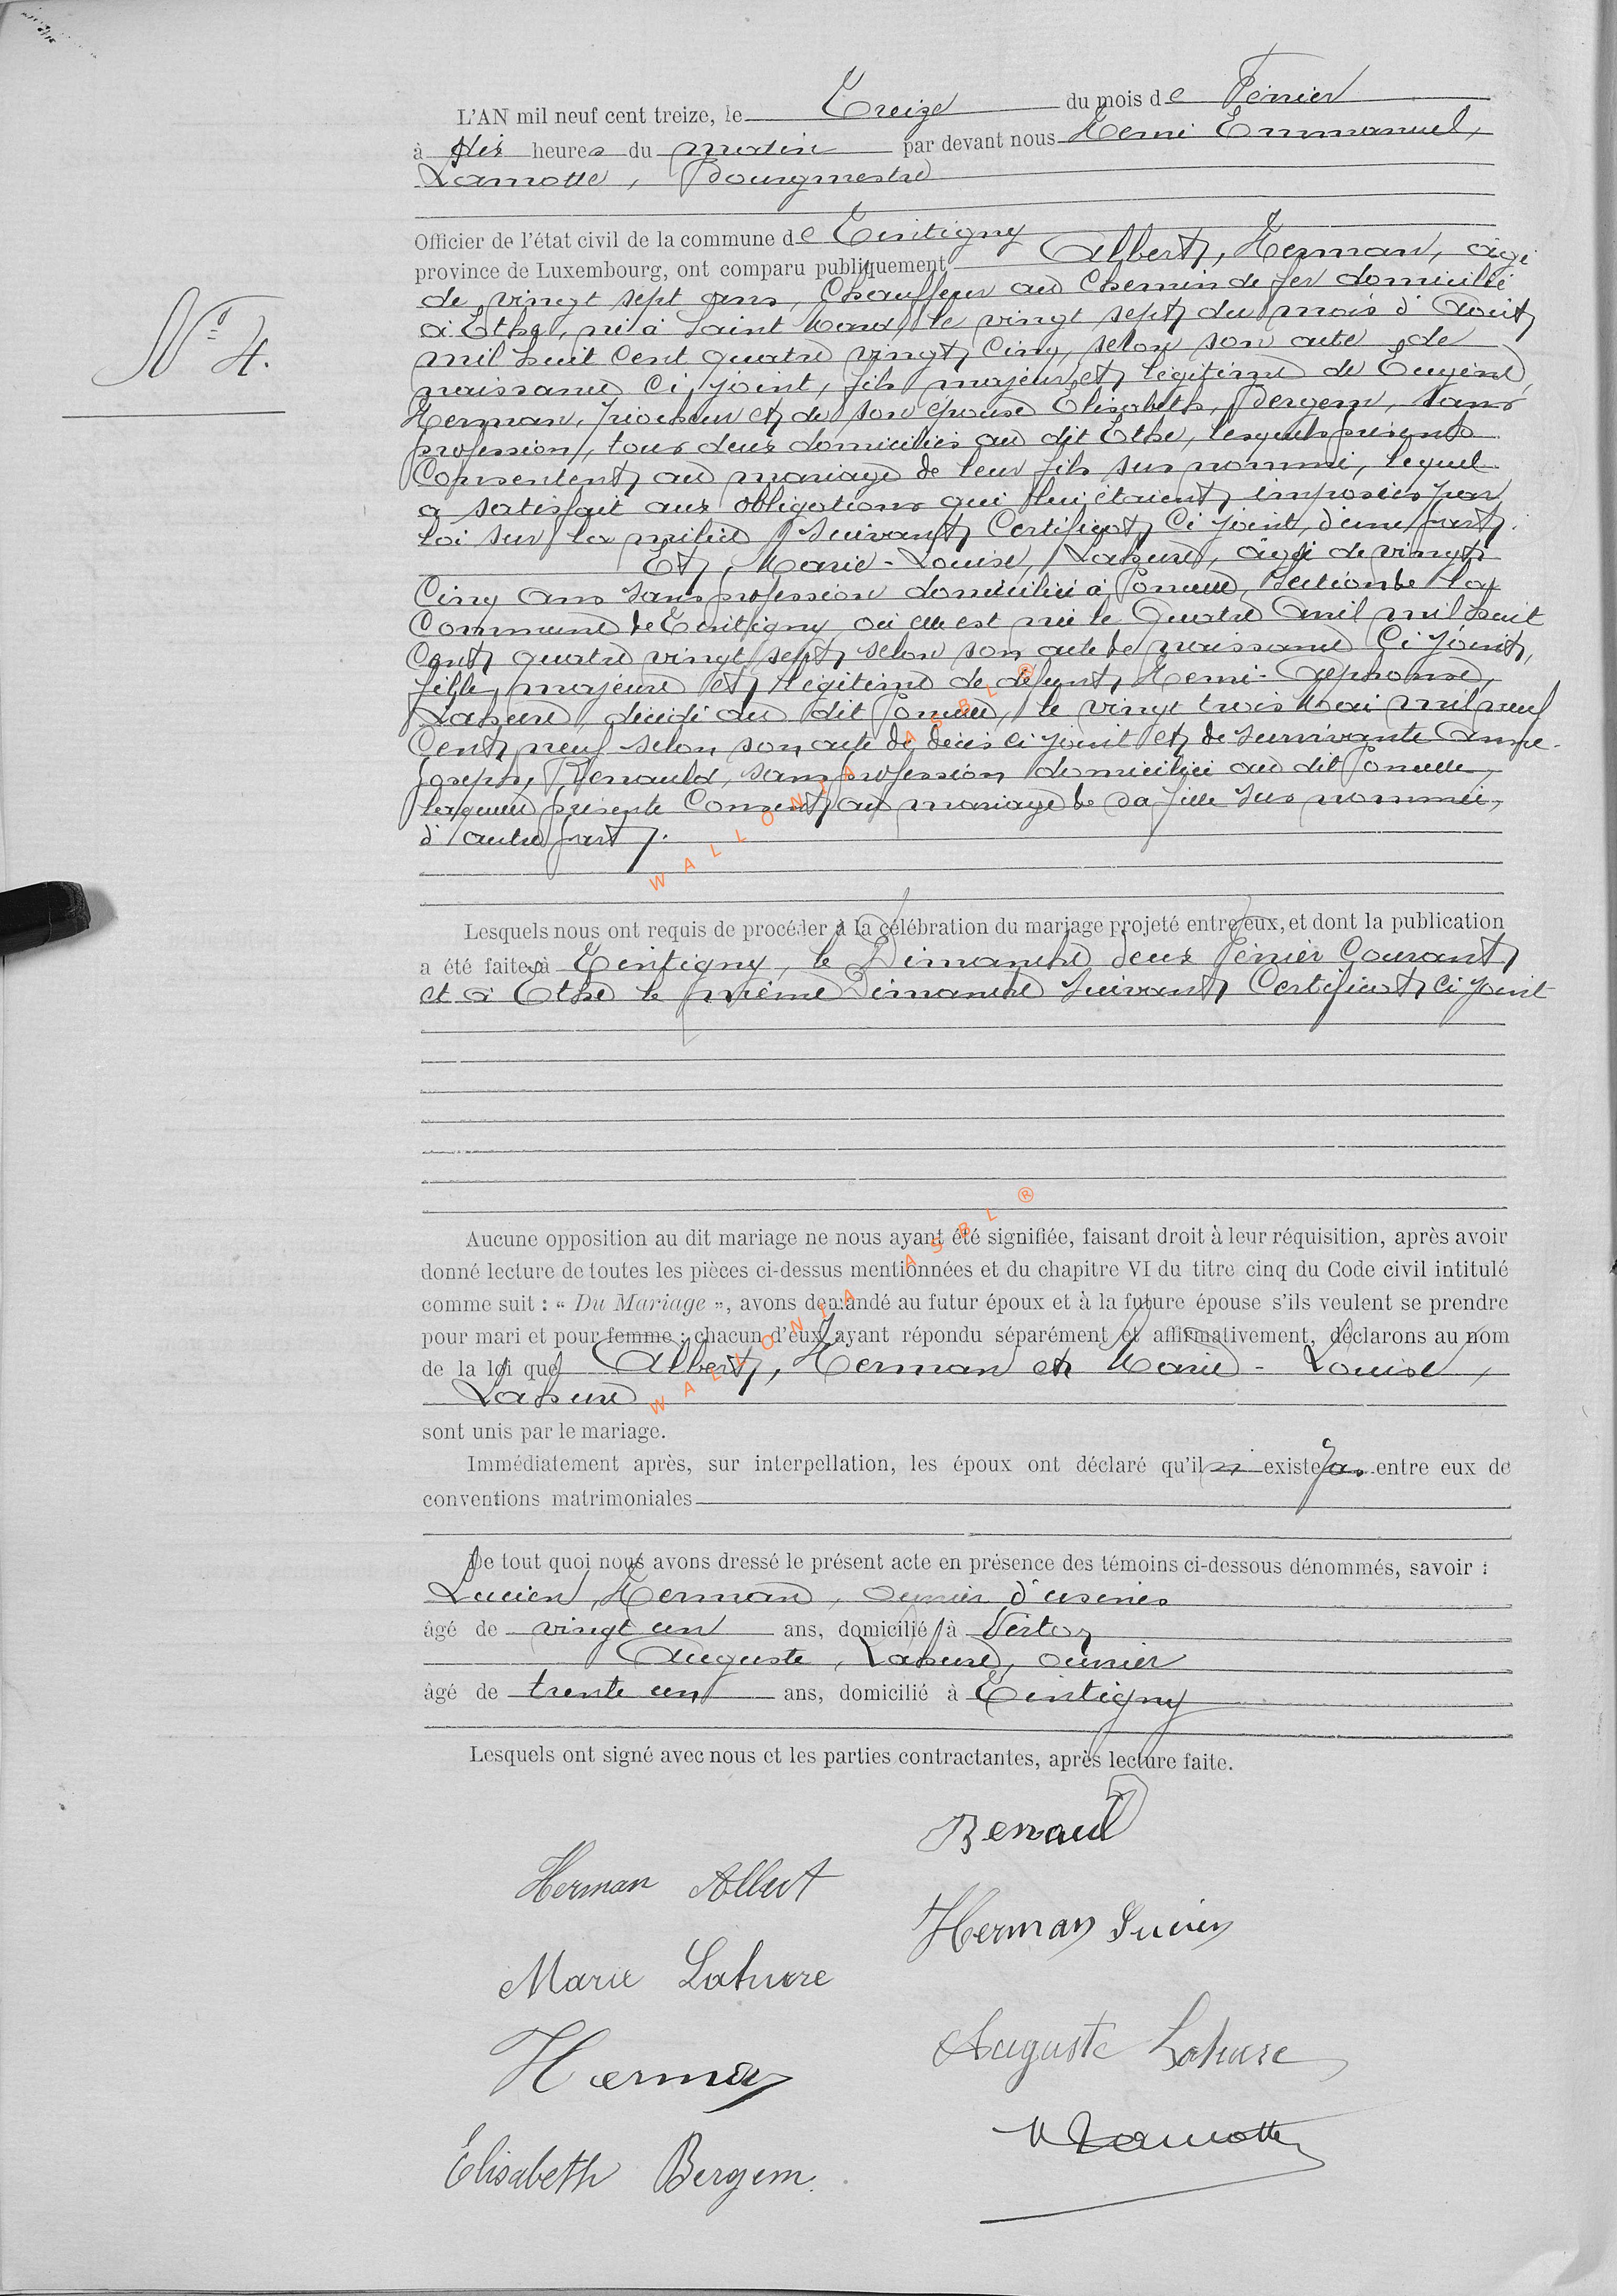 L'AN mil neuf cent treize, le Treize du mois de Février
à dix heures du matin par devant nous Henri Emmanuel,
Lamotte, Bourgmestre
Officier de l'état civil de la commune de Tintigny
province de Luxembourg, ont comparu publiquement Albert, Herman, âgé
de vingt sept ans, Chauffeur au Chemin de fer domicilié
à Ethe, né à Saint Mard, le vingt sept du mois d'Août
mil huit Cent quatre vingt Cinq, selon son acte de
naissance Ci joint, fils majeur et légitime de Eugène,
Herman, et de son épouse Elisabeth, Bergem, sans
profession, tous deux domiciliés au dit Ethe, lesquels présents
Consentent au mariage de leur fils sus nommé, lequel
a satisfait aux obligations qui lui étaient imposées par
loi sur la milice suivant Certificat Ci joint, d'une part.
Et, Marie-Louise, Lahure, âgée de vingt
Cinq ans sans profession domiciliée à Poncelle, Section de la
Commune de Tintigny où elle est née le Quatre Avril mil huit
Cent quatre vingt sept selon son acte de naissance Ci joint,
fille majeure et légitime de défunt Henri-Alphonse,
Lahure, décédé au dit Poncelle, le vingt trois Mai mil neuf
Cent neuf selon son acte de décès ci joint et de survivante Anne-
Joseph, Renauld, sans profession domiciliée au dit Poncelle,
laquelle présente Consent au mariage de sa fille sus nommée,
d'autre part.
Lesquels nous ont requis de procéder à la célébration du mariage projeté entre eux, et dont la publication
a été faite à Tintigny, le Dimanche deux Février Courant
et à Ethe le même Dimanche suivant Certificat Ci joint
Aucune opposition au dit mariage ne nous ayant été signifiée, faisant droit à leur réquisition, après avoir
donné lecture de toutes les pièces ci-dessus mentionnées et du chapitre VI du titre cinq du Code civil intitulé
comme suit : « Du Mariage », avons demandé au futur époux et à la future épouse s'ils veulent se prendre
pour mari et pour femme ; chacun d'eux ayant répondu séparément et affirmativement, déclarons au nom
de la loi que Albert, Herman et Marie-Louise,
Lahure
sont unis par le mariage.
Immédiatement après, sur interpellation, les époux ont déclaré qu'il n'existe pas entre eux de
conventions matrimoniales
De tout quoi nous avons dressé le présent acte en présence des témoins ci-dessous dénommés, savoir :
Lucien, Herman, ouvrier d'usines
âgé de vingt un ans, domicilié à Virton
Auguste, Lahure, ouvrier
âgé de trente un ans, domicilié à Tintigny
Lesquels ont signé avec nous et les parties contractantes, après lecture faite.
N° 4.
Renauld
Herman Albert
Herman Lucien
Marie Lahure
Auguste Lahure
Herman
H Lamotte
Elisabeth Bergem.
WALLONIA ASBL ®
WALLONIA ASBL ®